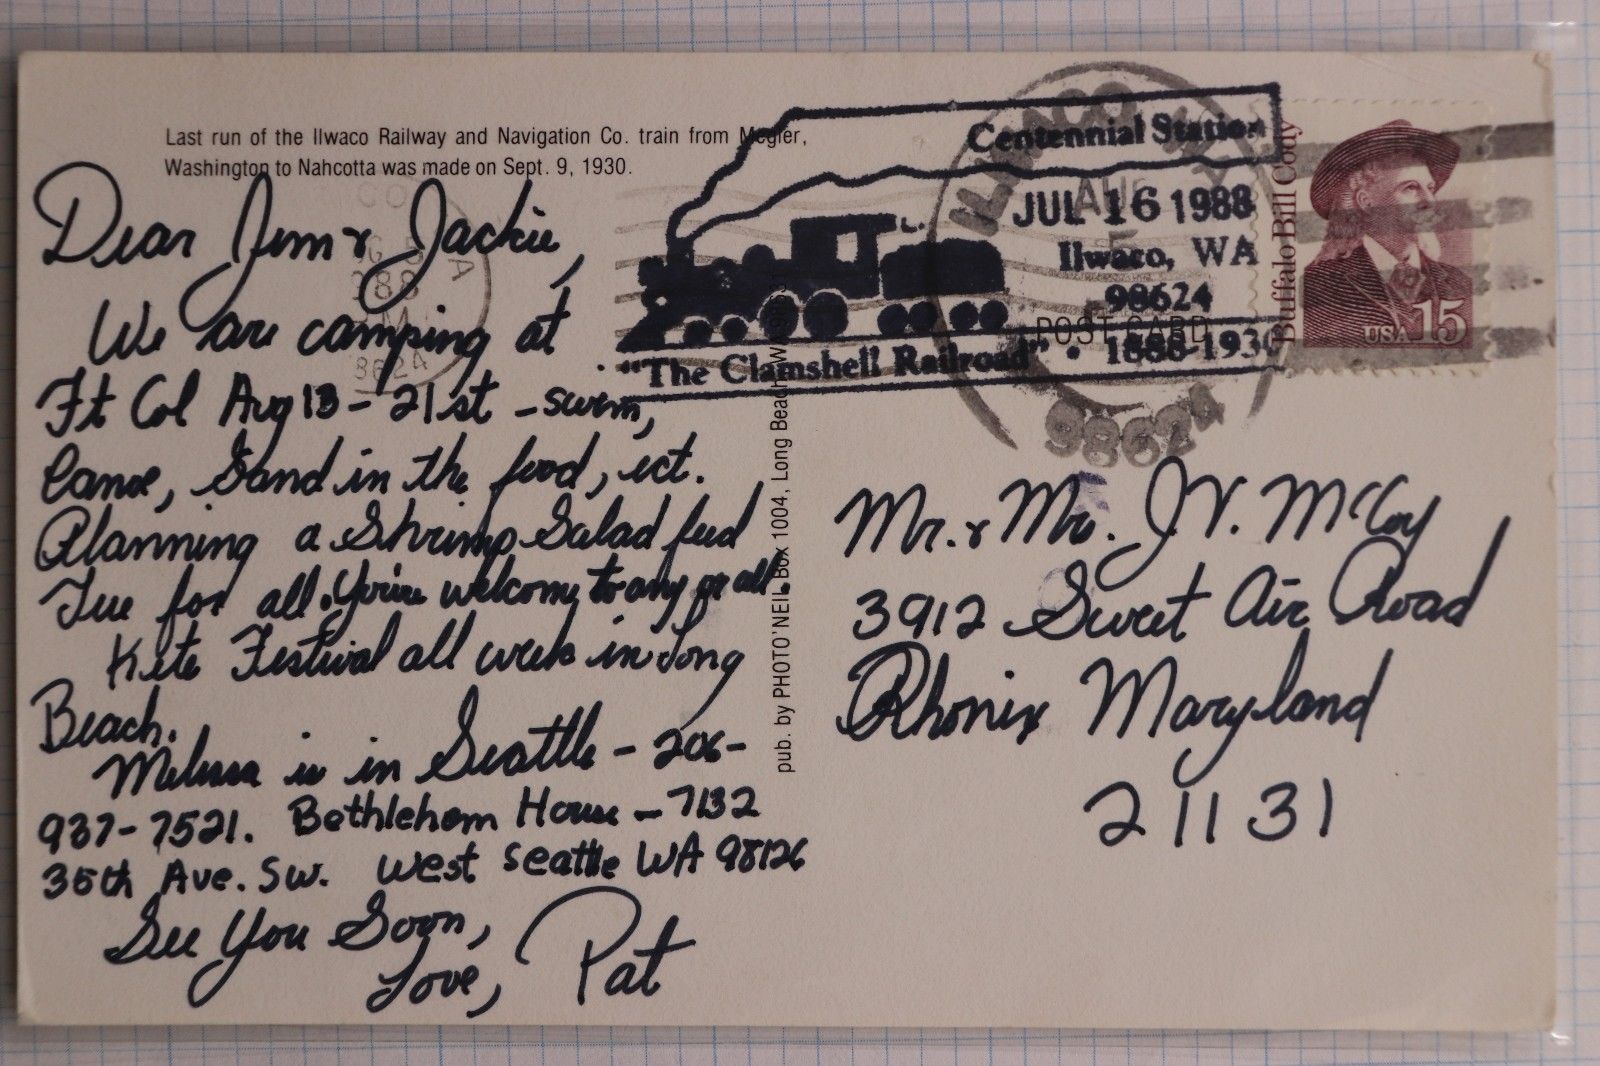 Last run of the Ilwaco Railway and Navigation Co. train from Megler,
Washington to Nahcotta was made on Sept. 9, 1930.
Dear Jim & Jackie,
We are camping at
Ft Col Aug 13 - 21st - swim,
Canoe, Sand in the food, ect.
Planning a Shrimp Salad feed
Tue for all. You're welcome to any or all.
Kite Festival all week in Long
Beach.
Melissa is in Seattle - 206-
937-7521. Bethlehem House - 7132
35th Ave. SW. West Seattle WA 98126
See You Soon,
Love, Pat
pub. by PHOTO'NEIL, Box 1004, Long Beach, WA 98631
Centennial Station
JUL 16 1988
Ilwaco, WA
98624
"The Clamshell Railroad" • 1888-1930
POST CARD
ILWACO
AUG
5
98624
Buffalo Bill Cody
USA 15
Mr. & Mrs. J.V. McCoy
3912 Sweet Air Road
Phonix Maryland
21131